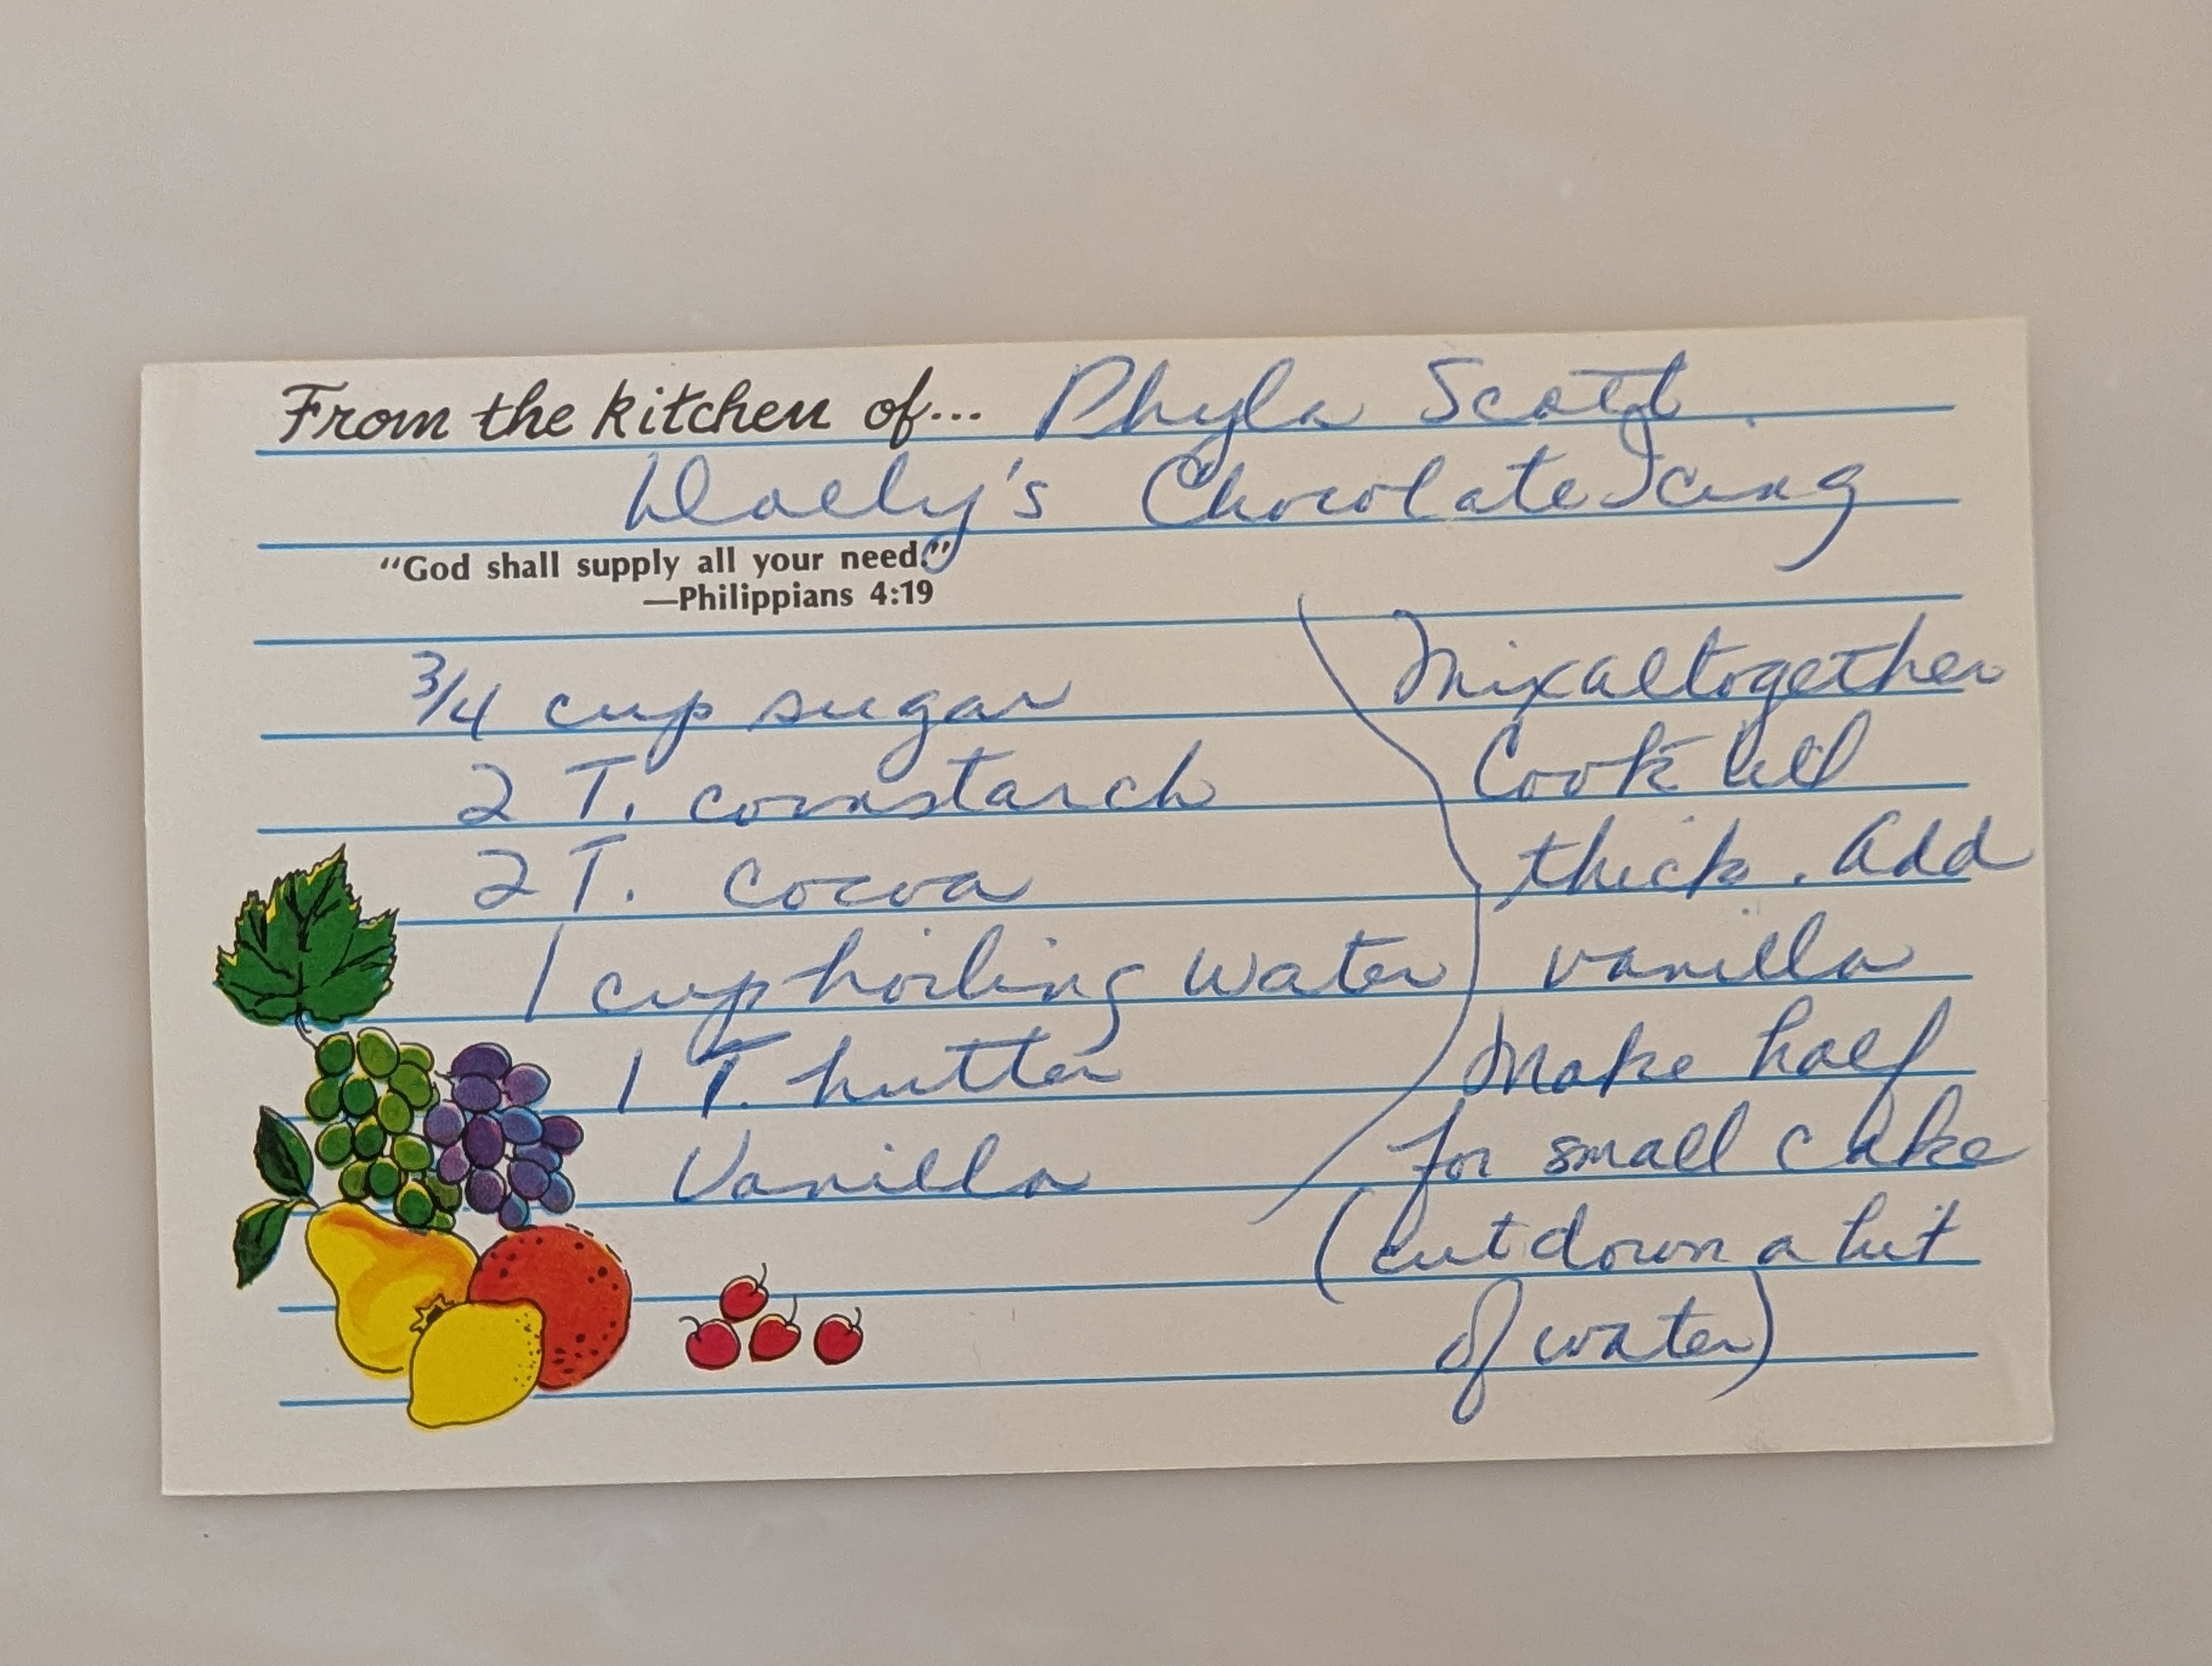 From the kitchen of... Phyla Scott
Dolly's Chocolate Icing
"God shall supply all your need."
—Philippians 4:19
3/4 cup sugar
2 T. cornstarch
2 T. cocoa
1 cup boiling water
1 T. butter
Vanilla
Mix altogether
Cook till
thick. Add
vanilla
Make half
for small cake
(cut down a bit
of water)